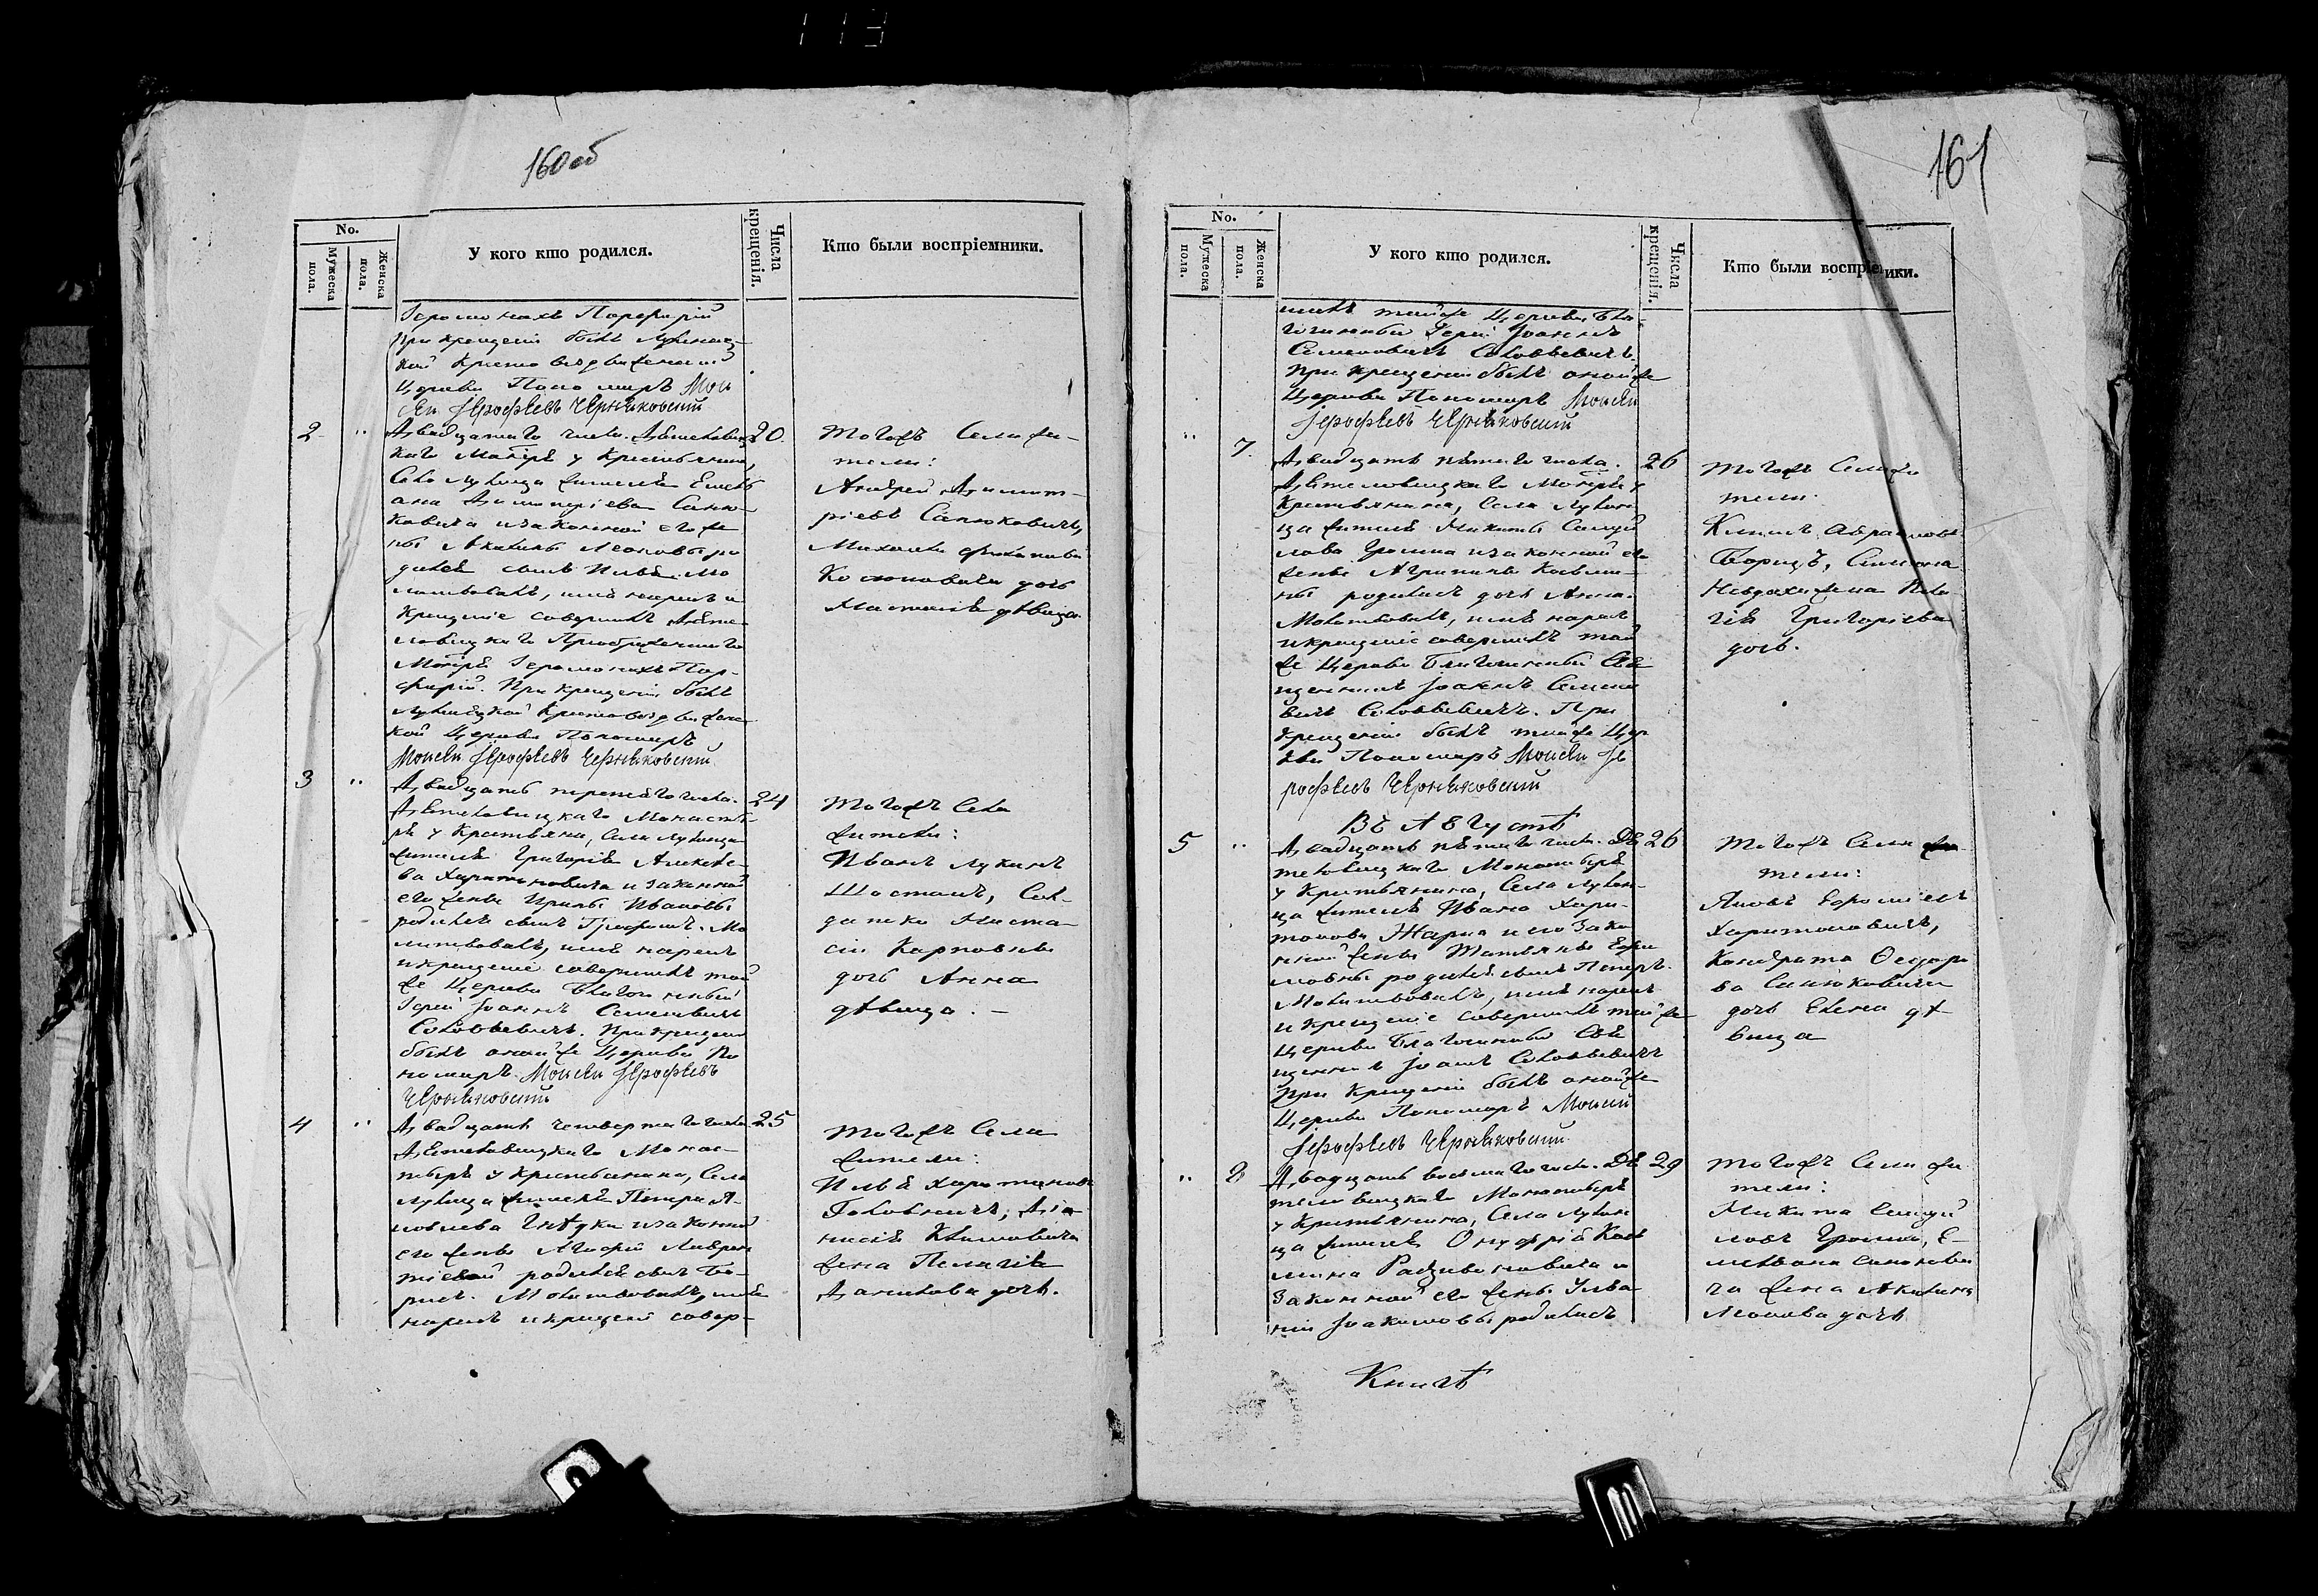 113
160 об
No.
Мужеска пола.
Женска пола.
У кого кто родился.
Числа крещенія.
Кто были воспріемники.
Іеромонахъ Порфирій
при крещеніи былъ
кой Кресто воздвиженской
Церкви Пономаръ Мои
сей Іерофѣевъ Черняковскій
2
20.
Двадцатаго числа.
каго Мастрѣ у Крестьянина,
Села Луконца жителя Емель
яна Димитріева Саню
ковича и законной его же
ны Акилины Леоновы ро
дился сынъ Илья. Мо
литвовалъ, имя нарекъ и
Крещеніе совершилъ Дѣте
ловицкаго Преображенскаго
Мастрѣ Іеромонахъ Пор-
фирій. При крещеніи былъ
Кресто воздвижен
кой Церкви Пономаръ
Моисей Іерофѣевъ Черняковскій
Тогожъ Села жи-
тели:
Андрей Димит-
ріевъ Санюковичъ,
Михаила
дочь
дѣвица.
3
24
Двадцать третяго числа.
Дѣтеловицкаго Монасты
рѣ у Крестьянина, Села Луконца
жителя Григорія Алексѣе-
ва Харитоновича и законной
его жены Ирины Ивановы
родился сынъ Трофимъ. Мо
литвовалъ, имя нарекъ
и крещеніе совершилъ той
же Церкви Благочинный
Іерей Іоаннъ Семеновичъ
Соловьевичъ. При крещеніи
былъ оной же Церкви По
номаръ Моисей Іерофѣевъ
Черняковскій
Тогожъ Села
жители:
Иванъ Лукинъ
Шостакъ, Сол-
датка Наста
сіи Карповны
дочь Анна
дѣвица. –
4
25
Двадцать четвертаго числа
Дѣтеловицкаго Монас-
тырѣ у Крестьянина, Села
Луконца жителя Петра
и законной
его жены Агафіи Лаврен
тіевой родился сынъ Бо-
рисъ. Молитвовалъ, имя
нарекъ и крещеніе совер-
Тогожъ Села
жители:
Илья Харитоновъ
Головничъ,
Климовича
жена Пелагія
Данилова дочь.
161
No.
Мужеска пола.
Женска пола.
У кого кто родился.
Числа крещенія.
Кто были воспріемники.
шилъ тойже Церкви, Бла
гочинный Іерей Іоаннъ
Семеновичъ Соловьевичъ.
При крещеніи былъ онойже
Церкви Пономаръ Моисей
Іерофѣевъ Черняковскій
7.
26
Двадцать пятаго числа.
Дѣтеловицкаго Мастрѣ у
Крестьянина, Села Лукон
ца жителя Никиты Самуй
лова Громика и законной его
жены Агрипины Косьми-
ны родилась дочь Анна.
Молитвовалъ, имя нарекъ
и крещеніе совершилъ той
же Церкви Благочинный Свя
щенникъ Іоаннъ Семено
вичъ Соловьевичъ. При
крещеніи былъ тойже Цер
кви Пономаръ Моисей Іе
рофѣевъ Черняковскій
Тогожъ Села жи
тели:
Климъ Абрамовъ
Борецъ, Симона
жена Пела
гія Григоріева
дочь.
Въ Августѣ
5
26
Двадцать пятаго числа. Дѣ
теловицкаго Монастырѣ
у Крестьянина, Села Лукон-
ца жителя Ивана Хари-
тонова Жарна и его Зако
нной жены Татьяны
родился сынъ Петръ.
Молитвовалъ, имя нарекъ
и крещеніе совершилъ тойже
Церкви Благочинный Свя
щенникъ Іоаннъ Соловьевичъ
при Крещеніи былъ онойже
Церкви Пономаръ Моисей
Іерофѣевъ Черняковскій
Тогожъ Села жи-
тели:
Яковъ
Харитоновичъ,
Кондрата Ѳедоро
ва Санюковича
дочь Елена дѣ
вица
8
29
Двадцать восьмаго числа. Дѣ
теловицкаго Монастырѣ
у Крестьянина, Села Лукон
ца жителя Онуфрія Кось
мина Радивоновича и
Законной его жены Улья
ніи Іоакимовы родилась
Тогожъ Села жи
тели:
Никита Самуй
ловъ Громыко, Е-
мельяна Санюкови
ча жена Акилина
Леонова дочь
Книгѣ